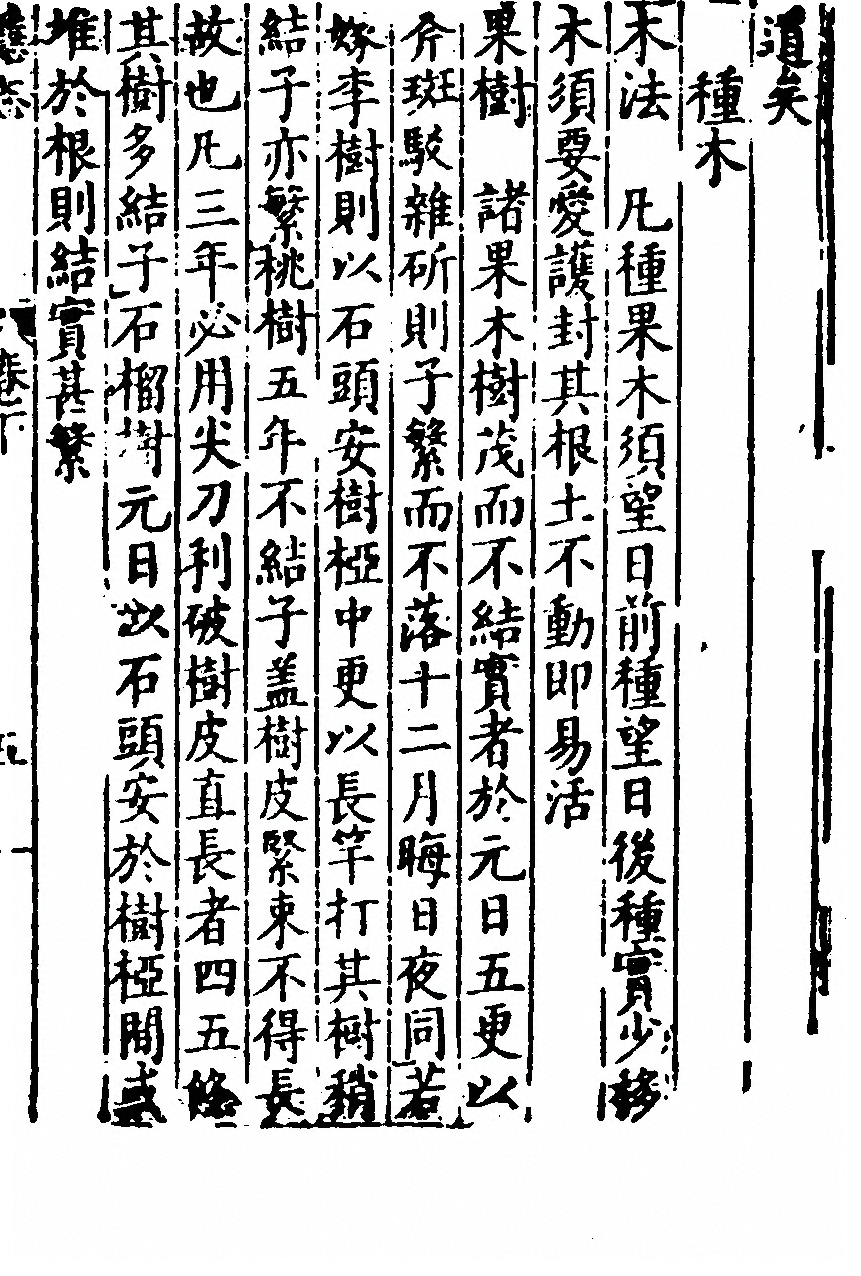 道矣
種木
木法　凡種果木須望日前種望日後種實少移
木須要愛護封其根土不動即易活
果樹　諸果木樹茂而不結實者於元日五更以
斧斑駁雜斫則子繁而不落十二月晦日夜同若
嫁李樹則以石頭安樹椏中更以長竿打其樹稍
結子亦繁桃樹五年不結子盖樹皮緊束不得長
故也凡三年必用尖刀利破樹皮直長者四五條
其樹多結子石榴樹元日以石頭安於樹椏間或
堆於根則結實甚繁
卷下